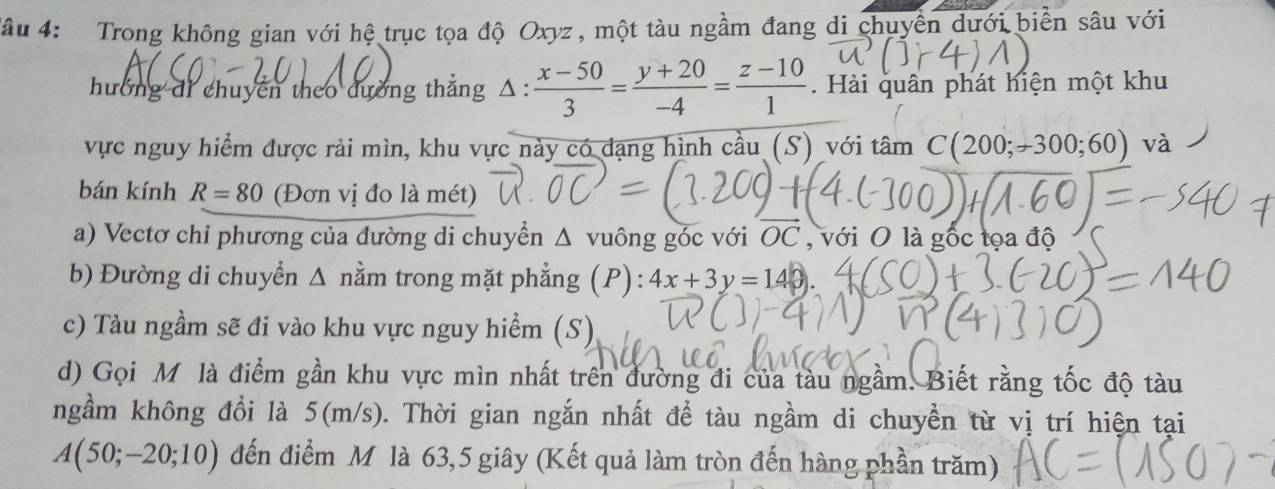 âu 4: Trong không gian với hệ trục tọa độ Oxyz, một tàu ngầm đang di chuyển dưới biển sâu với
A(50;-20;10)
u(3;-4;1)
hướng di chuyển theo đường thẳng Δ: (x-50)/3 = (y+20)/-4 = (z-10)/1. Hải quân phát hiện một khu
vực nguy hiểm được rải mìn, khu vực này có dạng hình cầu (S) với tâm C(200;-300;60) và
bán kính R = 80 (Đơn vị đo là mét)
u.OC = (3.200)+(4.(-300))+(1.60) = -540 ≠
a) Vectơ chỉ phương của đường di chuyển Δ vuông góc với OC, với O là gốc tọa độ
b) Đường di chuyển Δ nằm trong mặt phẳng (P): 4x+3y=140.
4(50)+3.(-20)=140
c) Tàu ngầm sẽ đi vào khu vực nguy hiểm (S)
u(3;-4;1) n(4;3;0)
d) Gọi M là điểm gần khu vực mìn nhất trên đường đi của tàu ngầm. Biết rằng tốc độ tàu
ngầm không đổi là 5(m/s). Thời gian ngắn nhất để tàu ngầm di chuyển từ vị trí hiện tại
A(50;-20;10) đến điểm M là 63,5 giây (Kết quả làm tròn đến hàng phần trăm)
AC=(150;-